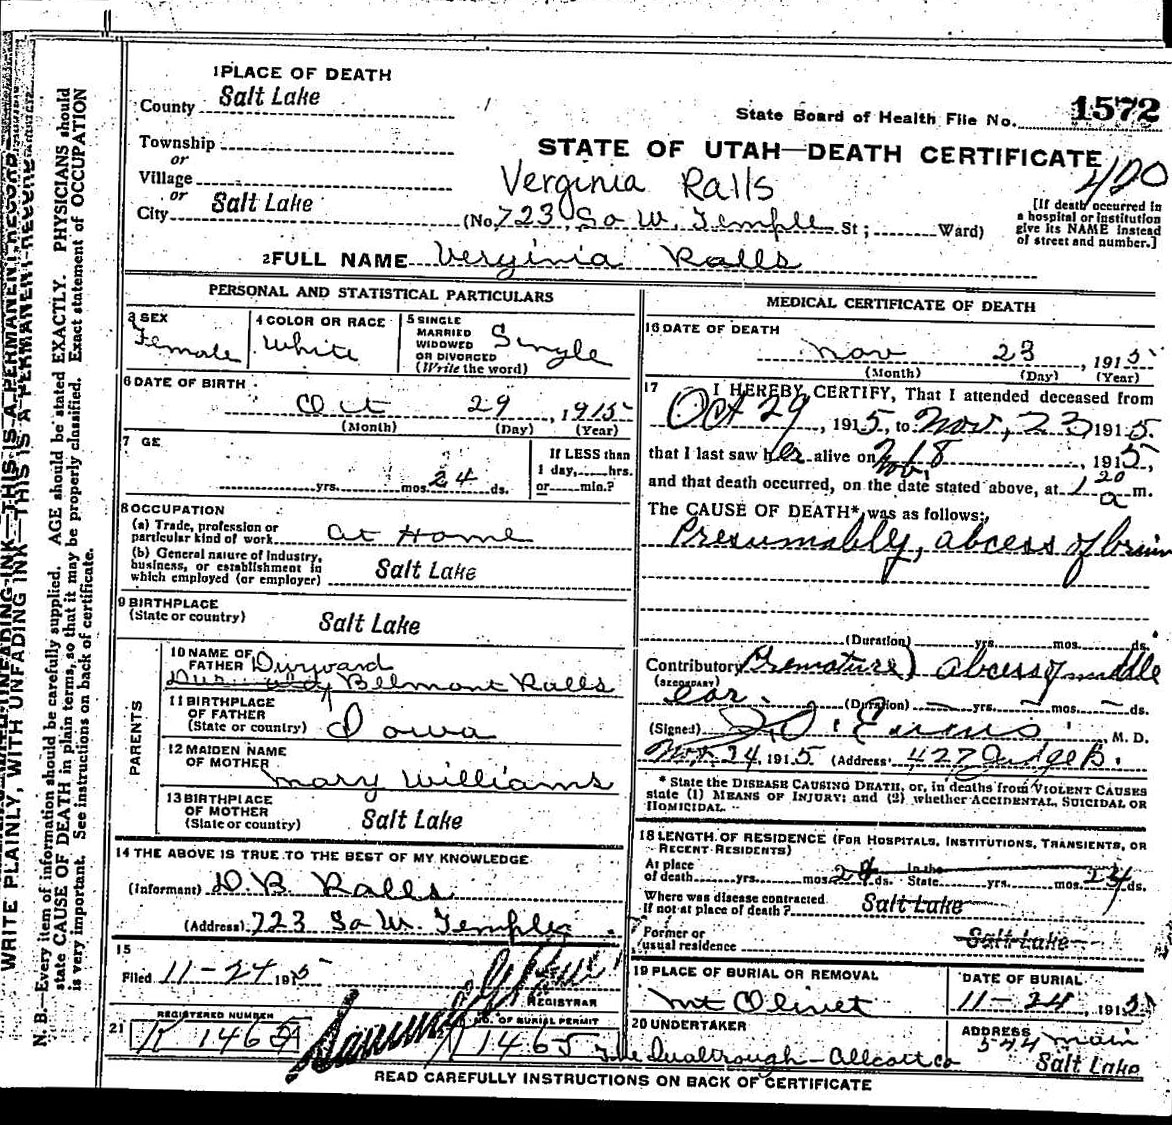 1 PLACE OF DEATH
County Salt Lake
State Board of Health File No. 1572
Township
STATE OF UTAH—DEATH CERTIFICATE
or
Village
Verginia Ralls
420
or
City Salt Lake
(No. 723 So W. Temple St; Ward)
[If death occurred in
a hospital or institution
give its NAME instead
of street and number.]
2 FULL NAME Verginia Ralls
PERSONAL AND STATISTICAL PARTICULARS
3 SEX
Female
4 COLOR OR RACE
White
5 SINGLE
MARRIED
WIDOWED
OR DIVORCED
(Write the word)
Single
6 DATE OF BIRTH
Oct 29, 1915
(Month) (Day) (Year)
7 GE
yrs. mos. 24 ds.
If LESS than
1 day, hrs.
or min.?
8 OCCUPATION
(a) Trade, profession or
particular kind of work At Home
(b) General nature of industry,
business, or establishment in
which employed (or employer) Salt Lake
9 BIRTHPLACE
(State or country) Salt Lake
PARENTS
10 NAME OF
FATHER Durward
Belmont Ralls
11 BIRTHPLACE
OF FATHER
(State or country) Iowa
12 MAIDEN NAME
OF MOTHER Mary Williams
13 BIRTHPLACE
OF MOTHER
(State or country) Salt Lake
14 THE ABOVE IS TRUE TO THE BEST OF MY KNOWLEDGE
(Informant) D. B. Ralls
(Address) 723 So W. Temple
15
Filed 11-24 1915
REGISTRAR
21
REGISTERED NUMBER
K 1465A
NO. OF BURIAL PERMIT
K 1465
MEDICAL CERTIFICATE OF DEATH
16 DATE OF DEATH
Nov 23, 1915
(Month) (Day) (Year)
17 I HEREBY CERTIFY, That I attended deceased from
Oct 29, 1915, to Nov, 23 1915.
that I last saw her alive on 8, 1915,
and that death occurred, on the date stated above, at 1 20 a m.
The CAUSE OF DEATH* was as follows:
Presumably, abcess of brain
(Duration) yrs. mos. ds.
Contributory (Premature) abcess of middle
(SECONDARY) ear.
(Duration) — yrs. — mos. — ds.
(Signed) M. D.
Nov. 24, 1915 (Address) 427 Judge B.
* State the DISEASE CAUSING DEATH, or, in deaths from VIOLENT CAUSES
state (1) MEANS OF INJURY; and (2) whether ACCIDENTAL, SUICIDAL OR
HOMICIDAL.
18 LENGTH OF RESIDENCE (FOR HOSPITALS, INSTITUTIONS, TRANSIENTS, OR
RECENT RESIDENTS)
At place
of death yrs. mos. 24 ds. In the State yrs. mos. 24 ds.
Where was disease contracted
If not at place of death? Salt Lake
Former or
usual residence Salt Lake
19 PLACE OF BURIAL OR REMOVAL
Mt Olivet
DATE OF BURIAL
11-24, 1915
20 UNDERTAKER
ADDRESS
544 Main
Salt Lake
READ CAREFULLY INSTRUCTIONS ON BACK OF CERTIFICATE
WRITE PLAINLY, WITH UNFADING INK—THIS IS A PERMANENT RECORD
N. B.—Every item of information should be carefully supplied. AGE should be stated EXACTLY. PHYSICIANS should
state CAUSE OF DEATH in plain terms, so that it may be properly classified. Exact statement of OCCUPATION
is very important. See instructions on back of certificate.